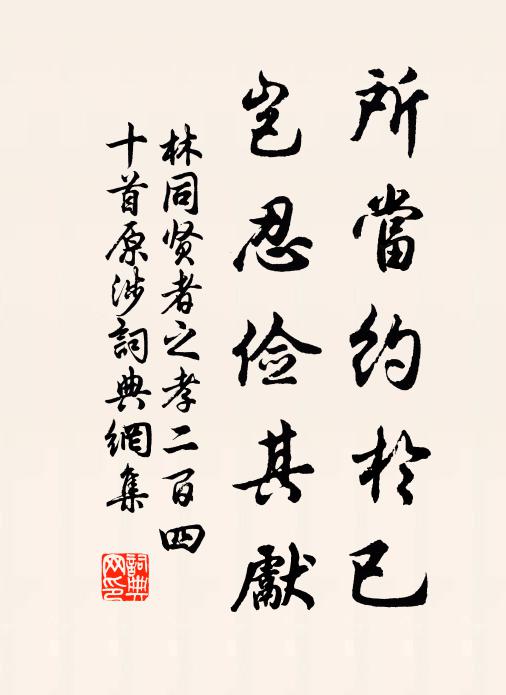 所當約於已
豈忍俭其獻
林同贤者之孝二百四
十首原涉詞典網集
詞典
网印